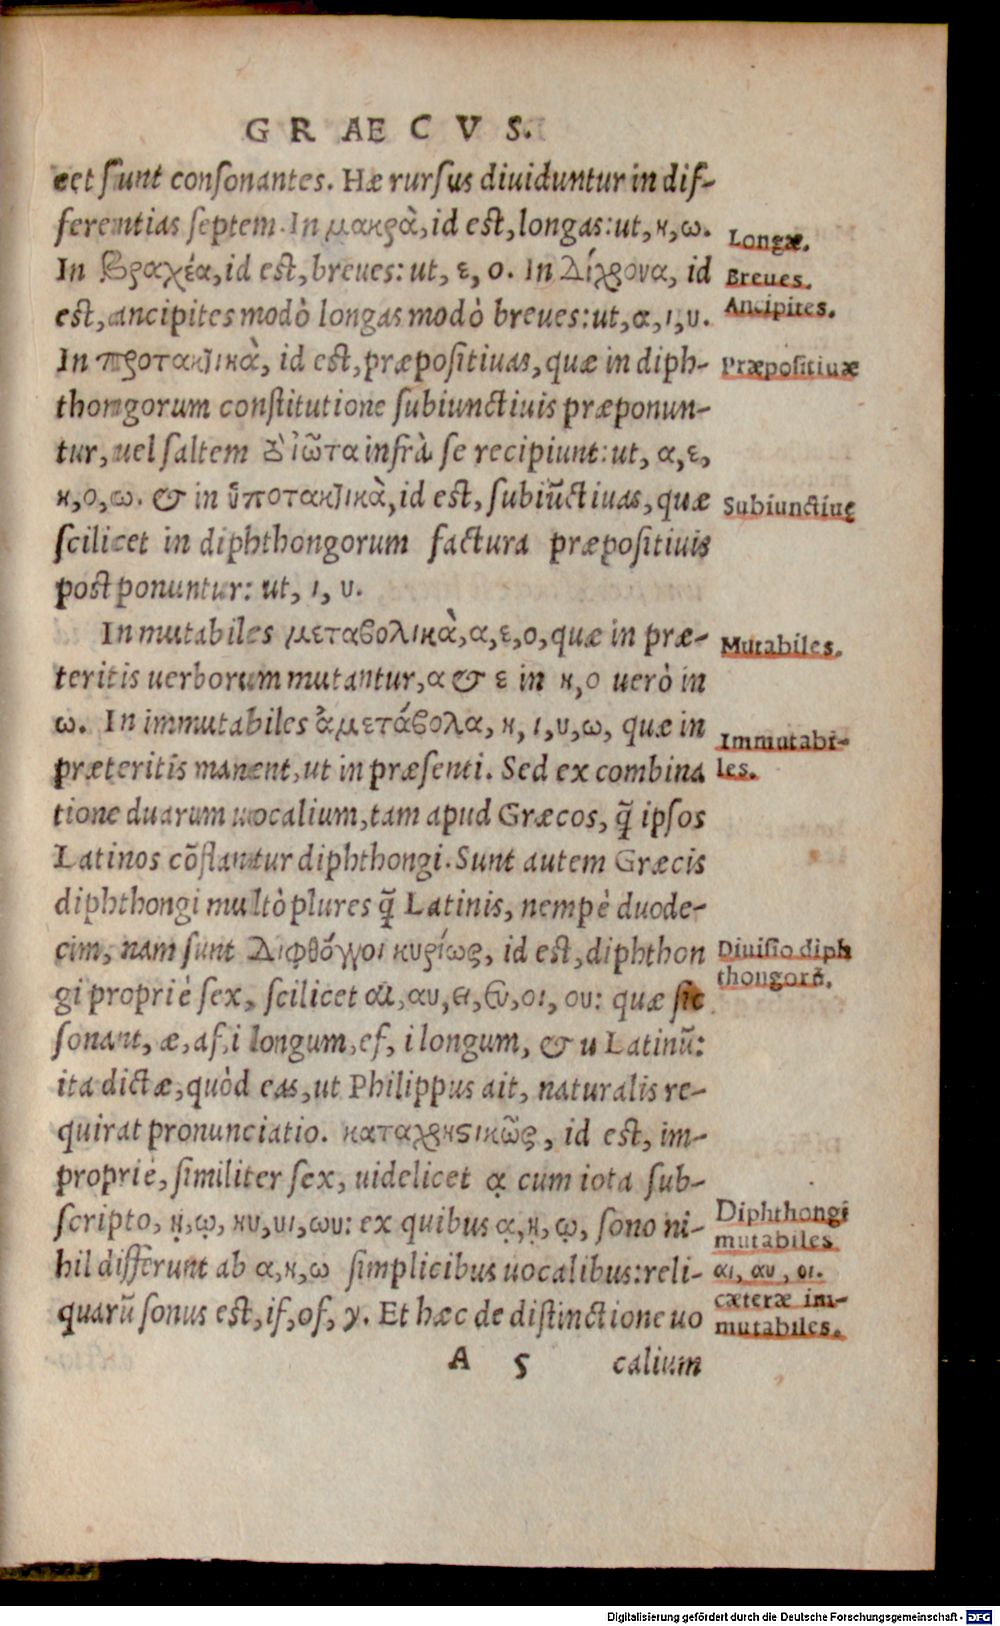 GRAECVS.
eet sunt consonantes. Hæ rursus diuiduntur in dif-
ferentias septem. In μακρὰ, id est, longas: ut, η, ω.
Longæ.
In βραχέα, id est, breues: ut, ε, ο. In Δίχρονα, id
Breues.
est, ancipites modò longas modò breues: ut, α, ι, υ.
Ancipites.
In προτακτικὰ, id est, præpositiuas, quæ in diph-
Præpositiuæ
thongorum constitutione subiunctiuis præponun-
tur, uel saltem δ᾽ ἰῶτα infrà se recipiunt: ut, α, ε,
η, ο, ω. & in ὑποτακτικὰ, id est, subiūctiuas, quæ
Subiunctiuę
scilicet in diphthongorum factura præpositiuis
postponuntur: ut, ι, υ.
In mutabiles μεταβολικὰ, α, ε, ο, quæ in præ-
Mutabiles.
teritis uerborum mutantur, α & ε in η, ο uerò in
ω. In immutabiles ἀμετάβολα, η, ι, υ, ω, quæ in
Immutabi-
præteritis manent, ut in præsenti. Sed ex combina
les.
tione duarum uocalium, tam apud Græcos, q̃ ipsos
Latinos cõflantur diphthongi. Sunt autem Græcis
diphthongi multò plures q̃ Latinis, nempè duode-
cim, nam sunt Διφθόγγοι κυρίως, id est, diphthon
Diuisio diph
gi propriè sex, scilicet αι, αυ, ει, ευ, οι, ου: quæ sic
thongorũ.
sonant, æ, af, i longum, ef, i longum, & u Latinũ:
ita dictæ, quòd eas, ut Philippus ait, naturalis re-
quirat pronunciatio. καταχρηστικῶς, id est, im-
propriè, similiter sex, uidelicet ᾳ cum iota sub-
scripto, ῃ, ῳ, ηυ, υι, ωυ: ex quibus ᾳ, ῃ, ῳ, sono ni-
Diphthongi
mutabiles
hil differunt ab α, η, ω simplicibus uocalibus: reli-
αι, αυ, οι.
cæteræ im-
quarũ sonus est, if, of, y. Et hæc de distinctione uo
mutabiles.
A 5 calium
Digitalisierung gefördert durch die Deutsche Forschungsgemeinschaft - DFG